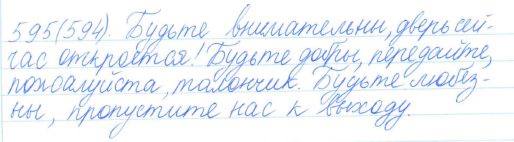 595(594). Будьте внимательны, дверь сей-
час откроется! Будьте добры, передайте,
пожалуйста, талончик. Будьте любез-
ны, пропустите нас к выходу.